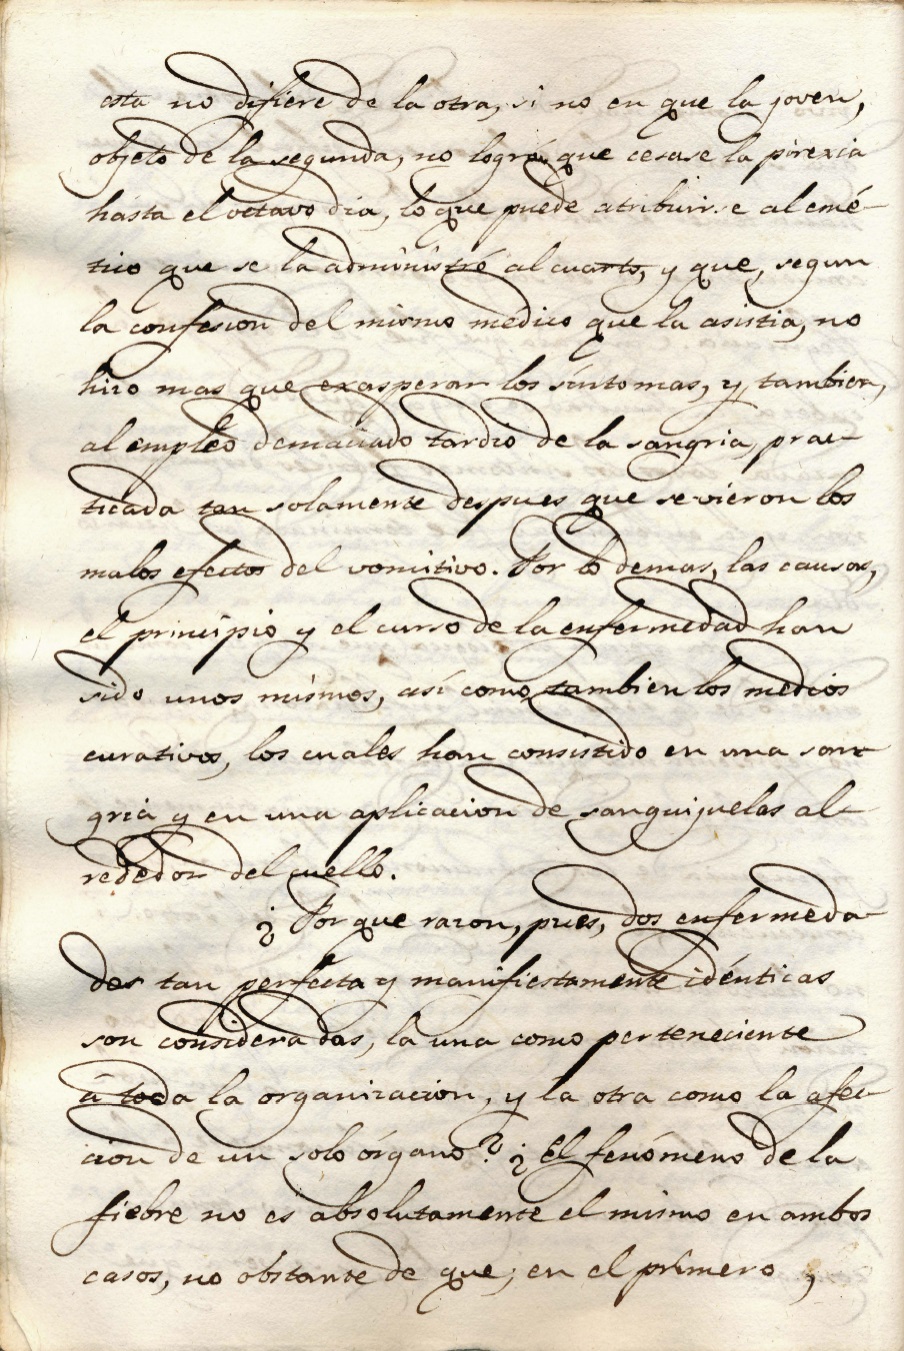 esta no difiere de la otra, si no en que la joven,
objeto de la segunda, no logró que cesase la pirexia
hasta el octavo dia, lo que puede atribuirse al emé-
tico que se la administré al cuarto, y que, segun
la confesion del mismo médico que la asistia, no
hizo mas que exasperar los síntomas, y tambien,
al empleo demaciado tardio de la sangria, prac-
ticada tan solamente despues que se vieron los
malos efectos del vomitivo. Por lo demas, las causas,
el principio y el curso de la enfermedad han
sido unos mismos, así como tambien los medios
curativos, los cuales han consistido en una san-
gria y en una aplicacion de sanguijuelas al-
rededor del cuello.
¿Por que razon, pues, dos enfermeda-
des tan perfecta y manifiestamente idénticas
son consideradas, la una como perteneciente
á toda la organizacion, y la otra como la afec-
cion de un solo órgano? ¿El fenómeno de la
fiebre no es absolutamente el mismo en ambos
casos, no obstante de que, en el primero,